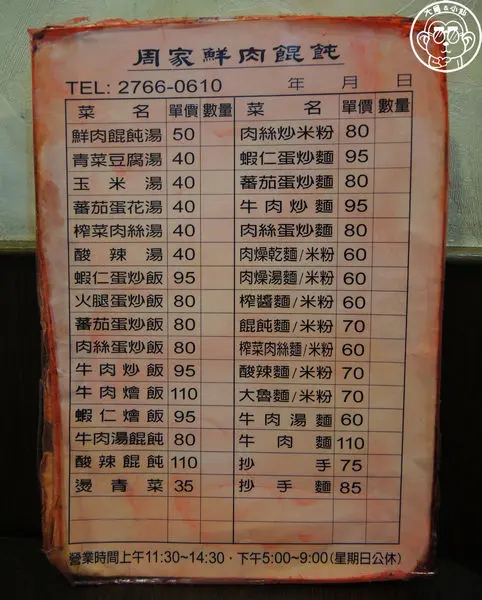 大手小點
周家鮮肉餛飩
TEL: 2766-0610 年 月 日
菜名 單價 數量 菜名 單價 數量
鮮肉餛飩湯 50 肉絲炒米粉 80
青菜豆腐湯 40 蝦仁蛋炒麵 95
玉米湯 40 蕃茄蛋炒麵 80
蕃茄蛋花湯 40 牛肉炒麵 95
榨菜肉絲湯 40 肉絲蛋炒麵 80
酸辣湯 40 肉燥乾麵/米粉 60
蝦仁蛋炒飯 95 肉燥湯麵/米粉 60
火腿蛋炒飯 80 榨醬麵/米粉 60
蕃茄蛋炒飯 80 餛飩麵/米粉 70
肉絲蛋炒飯 80 榨菜肉絲麵/米粉 60
牛肉炒飯 95 酸辣麵/米粉 70
牛肉燴飯 110 大魯麵/米粉 70
蝦仁燴飯 95 牛肉湯麵 60
牛肉湯餛飩 80 牛肉麵 110
酸辣餛飩 110 抄手 75
燙青菜 35 抄手麵 85
營業時間上午11:30~14:30‧下午5:00~9:00(星期日公休)